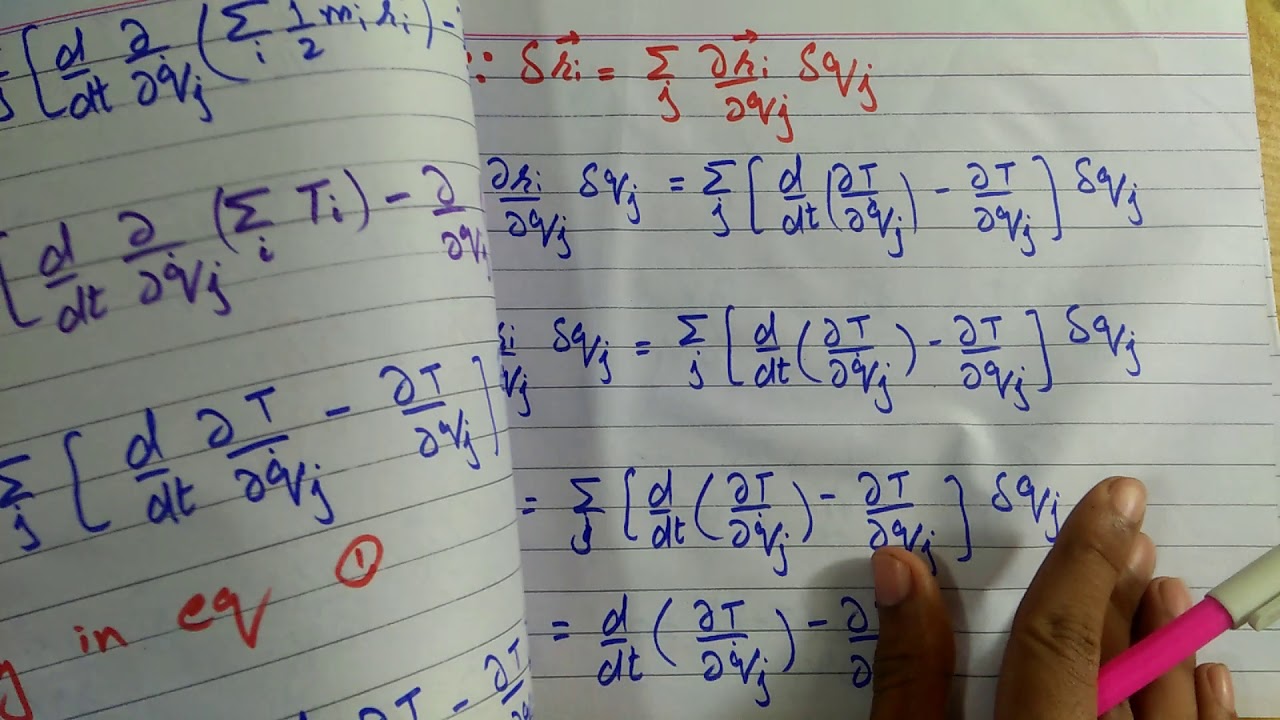 [d/dt ∂/∂q̇j (Σi 1/2 mi ṙi) -
[d/dt ∂/∂q̇j (Σi Ti) - ∂/∂qj
Σj [d/dt ∂T/∂q̇j - ∂T/∂qj]
in eq ①
∂T - ∂T
∵ δr⃗i = Σj ∂r⃗i/∂qj δqj
∂ri/∂qj δqj = Σj [d/dt (∂T/∂q̇j) - ∂T/∂qj] δqj
δqj = Σj [d/dt (∂T/∂q̇j) - ∂T/∂qj] δqj
= Σj [d/dt (∂T/∂q̇j) - ∂T/∂qj] δqj
= d/dt (∂T/∂q̇j) - ∂